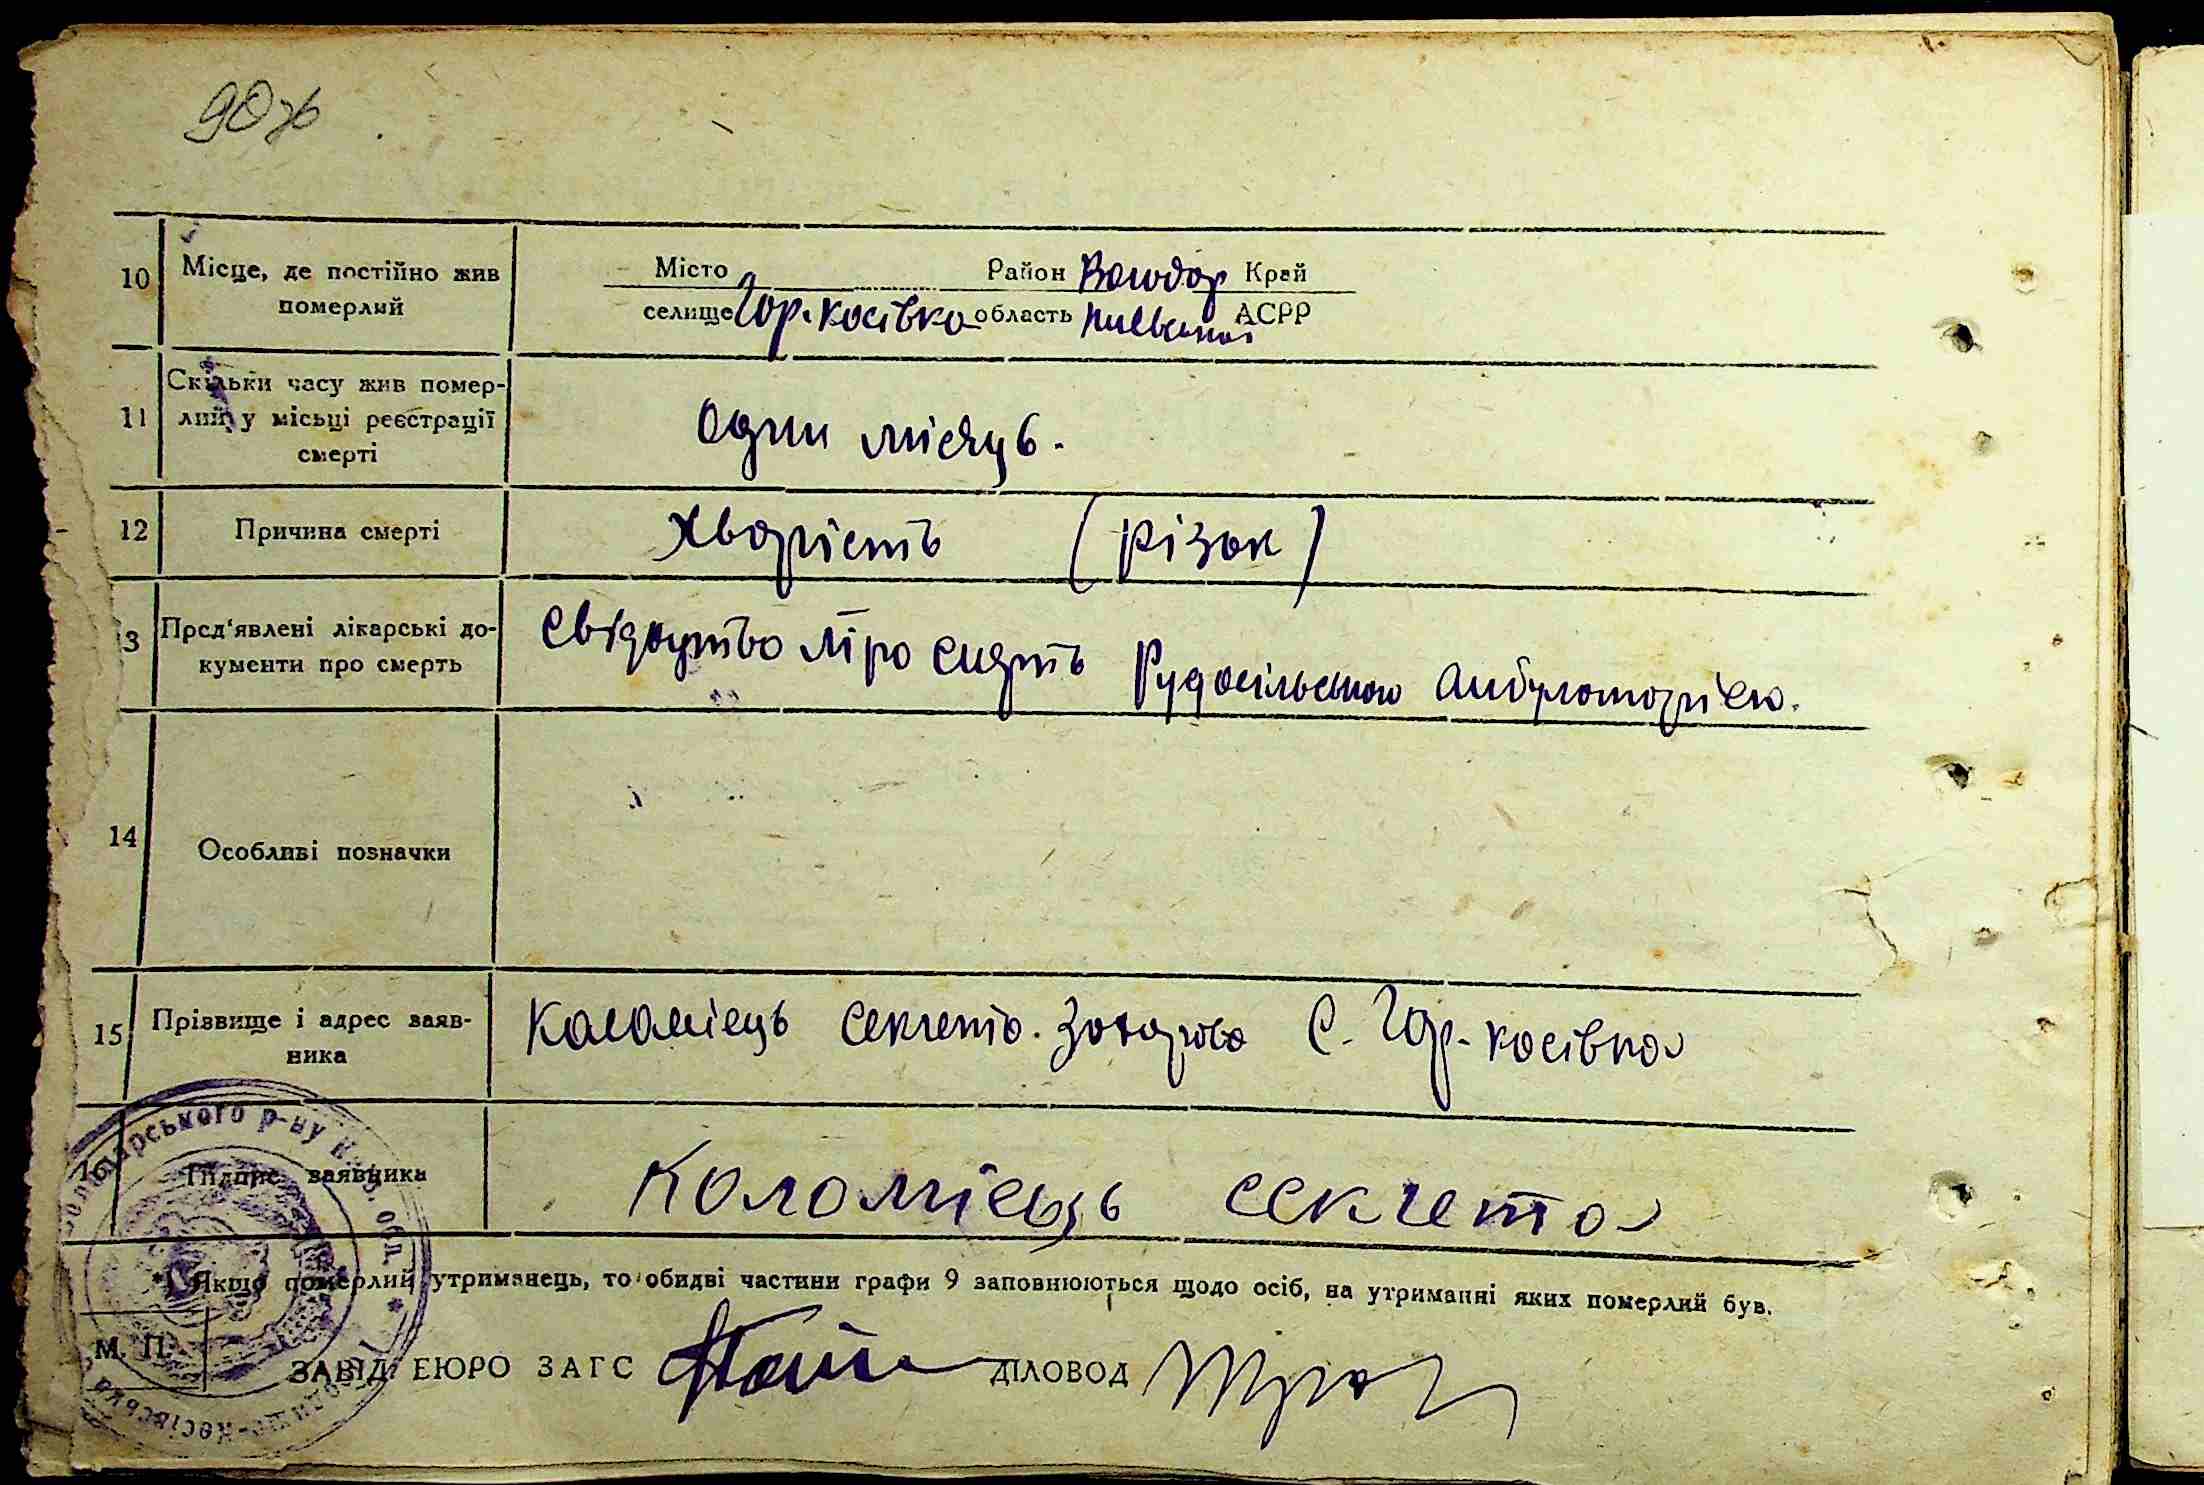 90 ж
10 Місце, де постійно жив померлий
Місто Район Володар Край
селище Гор. Косівка область Київської АСРР
11 Скільки часу жив помер-
лий у місьці реєстрації
смерті
один місяць.
12 Причина смерті
Хворість (різак)
3 Пред'явлені лікарські до-
кументи про смерть
Свідоцтво про смерть Рудосільською амбулаторією.
14 Особливі позначки
15 Прізвище і адрес заяв-
ника
Коломієць Секлета. Захарова С. Гор. Косівка
16 Підпис заявника
Коломієць секлета
*) Якщо померлий утриманець, то обидві частини графи 9 заповнюються щодо осіб, на утриманні яких померлий був.
М. П.
ЗАВІД. БЮРО ЗАГС ДІЛОВОД
Володарського р-ну К обл. * Косівська